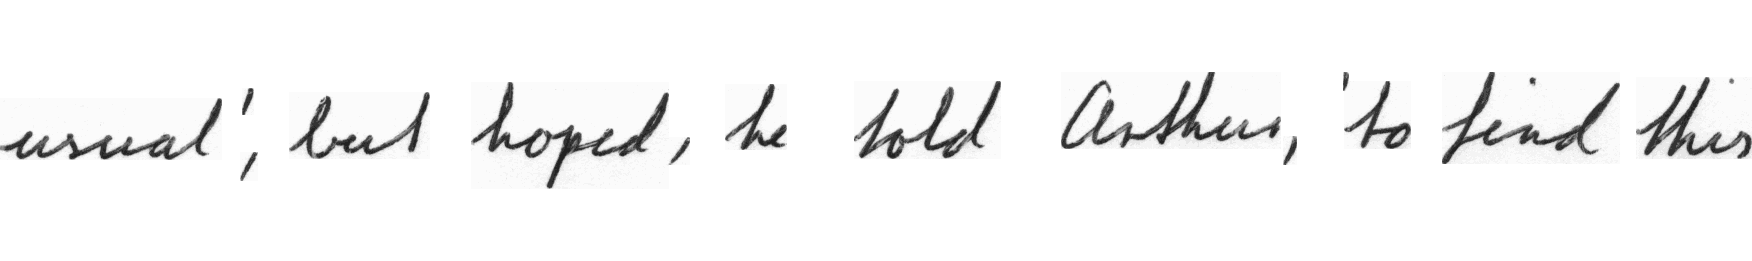 usual', but hoped, he told Arthur, 'to find this